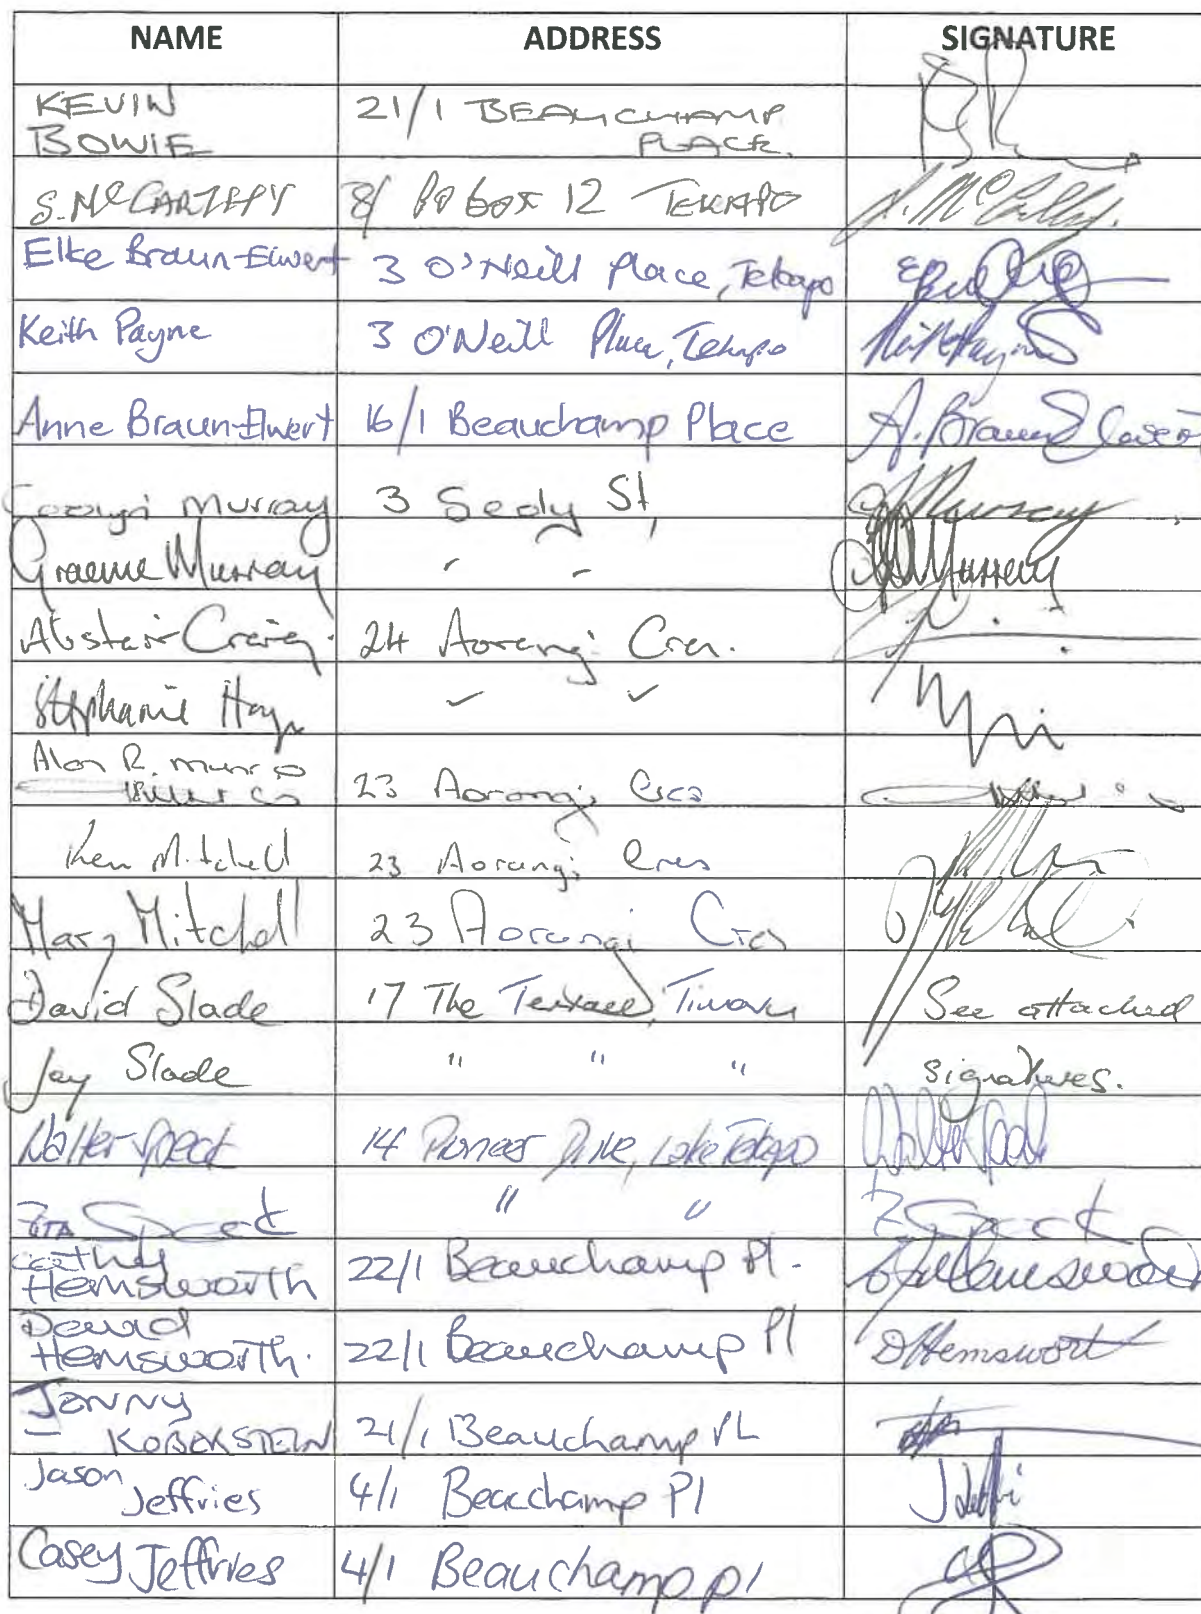 NAME ADDRESS SIGNATURE
KEVIN BOWIE 21/1 BEAUCHAMP PLACE.
S. McCARTHY 8/ PO box 12 TEKAPO
Elke Braun-Elwert 3 O'Neill Place, Tekapo
Keith Payne 3 O'Neill Place, Tekapo
Anne Braun-Elwert 16/1 Beauchamp Place A. Braun-Elwert
Murray 3 Sealy St,
Graeme Murray " " Murray
Alistair Craig. 24 Aorangi Cres.
Stephanie Hays " "
Alan R. Munro 23 Aorangi Cres
Ken Mitchell 23 Aorangi Cres
Mary Mitchell 23 Aorangi Cres
David Slade 17 The Terrace, Timaru See attached
Joy Slade " " " signatures.
Walter Speck 14 Pioneer Drive, Lake Tekapo Walter Speck
Zita Speck " " Z Speck
Cathy Hemsworth 22/1 Beauchamp Pl. Hemsworth
David Hemsworth. 22/1 Beauchamp Pl D Hemsworth
Jenny KOBERSTEIN 21/1 Beauchamp PL
Jason Jeffries 4/1 Beacchamp Pl
Casey Jeffries 4/1 Beauchamp pl